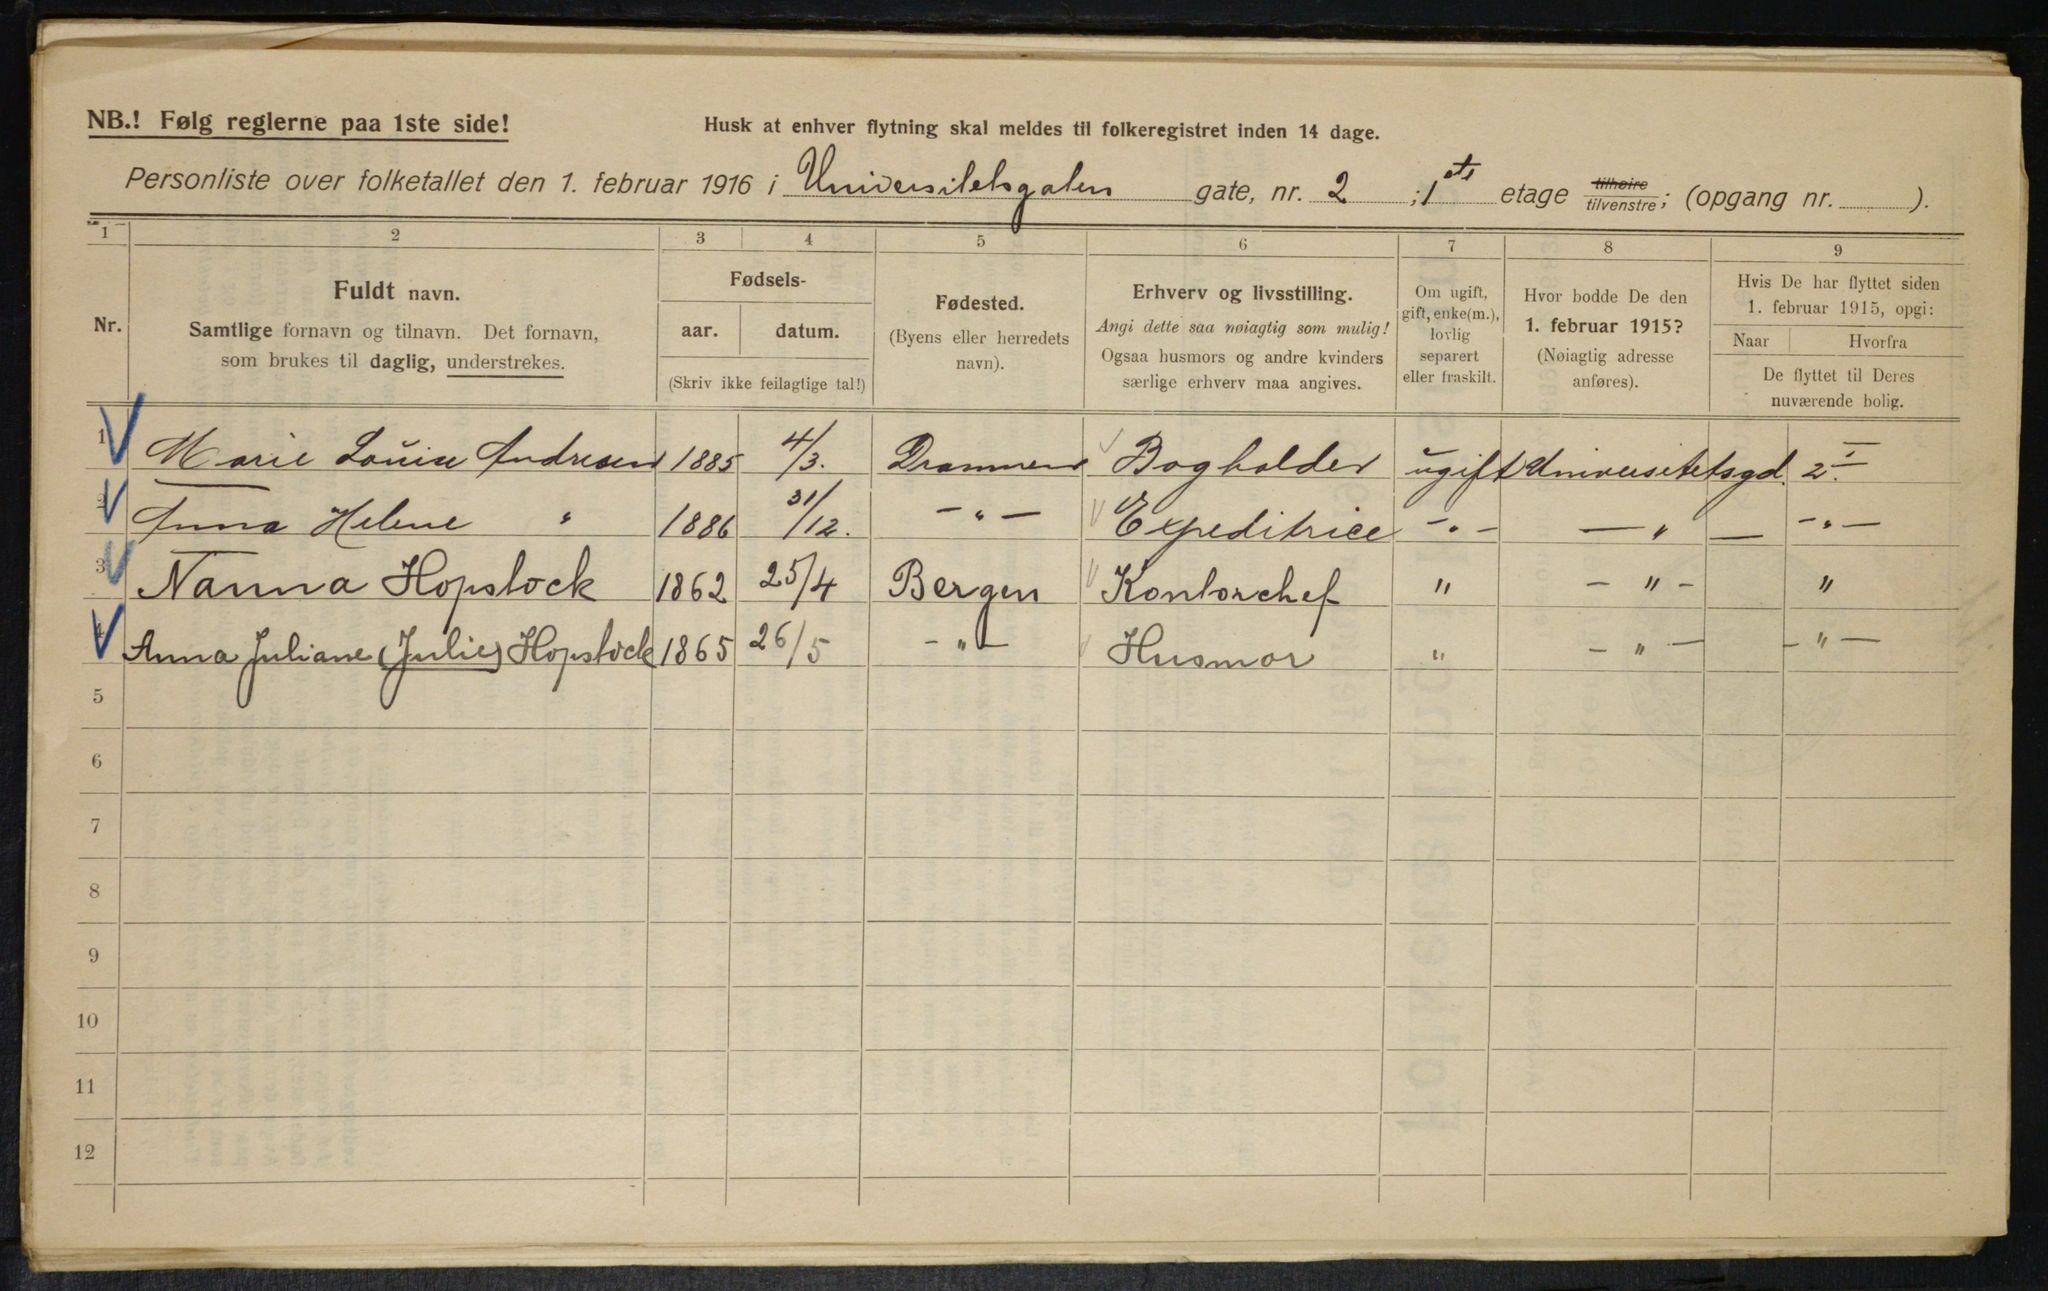 NB.! Følg reglerne paa 1ste side!
Husk at enhver flytning skal meldes til folkeregistret inden 14 dage.
Personliste over folketallet den 1. februar 1916 i Universitetsgaten gate, nr. 2 ; 1ste etage tilhøire tilvenstre; (opgang nr. ).
1 2 3 4 5 6 7 8 9
Nr.
Fuldt navn.
Samtlige fornavn og tilnavn. Det fornavn,
som brukes til daglig, understrekes.
Fødsels-
aar. datum.
(Skriv ikke feilagtige tal!)
Fødested.
(Byens eller herredets
navn).
Erhverv og livsstilling.
Angi dette saa nøiagtig som mulig!
Ogsaa husmors og andre kvinders
særlige erhverv maa angives.
Om ugift,
gift, enke(m.),
lovlig
separert
eller fraskilt.
Hvor bodde De den
1. februar 1915?
(Nøiagtig adresse
anføres).
Hvis De har flyttet siden
1. februar 1915, opgi:
Naar Hvorfra
De flyttet til Deres
nuværende bolig.
1 Marie Louise Andresen 1885 4/3. Drammen Bogholder ugift Universitetsgd. 2 I
2 Anna Helene " 1886 31/12. - " - Expeditrice - " - - " - - " -
3 Nanna Hopstock 1862 25/4 Bergen Kontorchef " - " - "
4 Anna Juliane (Julie) Hopstock 1865 26/5 - " - Husmor " - " - - " -
5
6
7
8
9
10
11
12